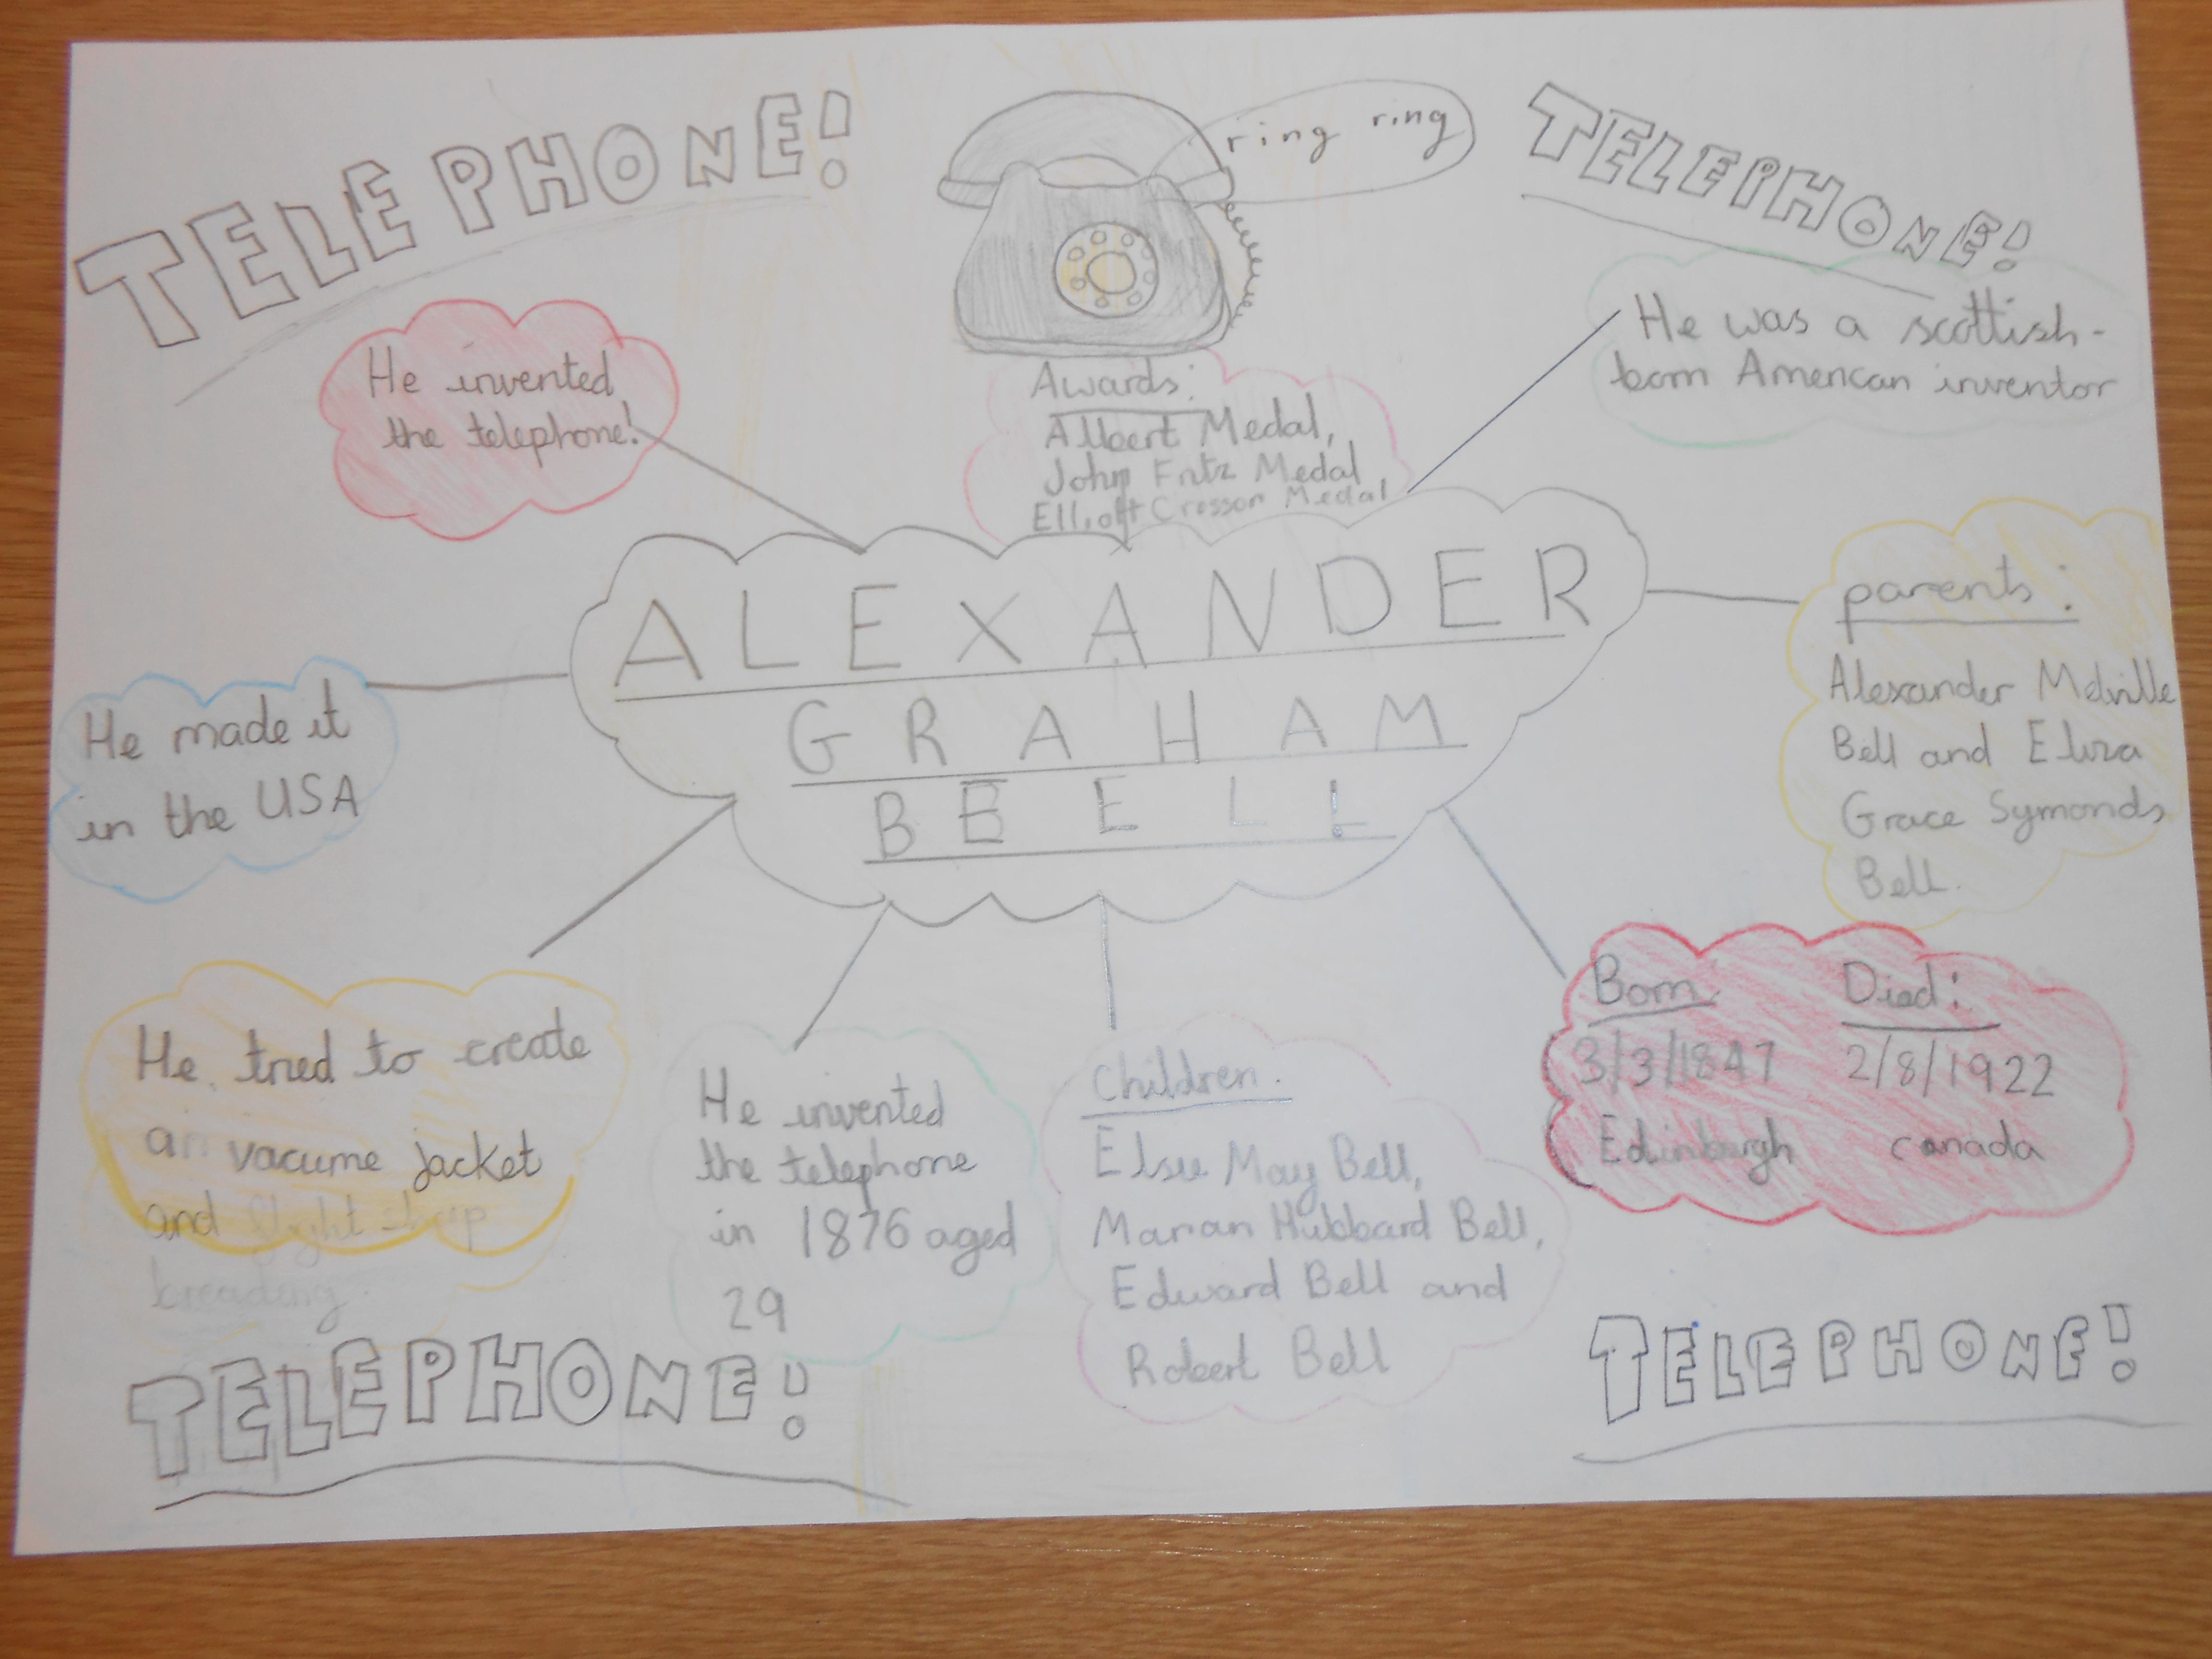 TELEPHONE!
ring ring
TELEPHONE!
He invented
the telephone!
Awards:
Albert Medal,
John Fritz Medal
Elliott Cresson Medal
He was a scottish-
born American inventor
ALEXANDER
GRAHAM
BEELL
parents:
Alexander Melville
Bell and Eliza
Grace Symonds
Bell.
He made it
in the USA
He tried to create
an vacume jacket
and
He invented
the telephone
in 1876 aged
29
Children:
Elsie May Bell,
Marian Hubbard Bell,
Edward Bell and
Robert Bell
Born: Died:
3/3/1847 2/8/1922
Edinburgh canada
TELEPHONE!
TELEPHONE!